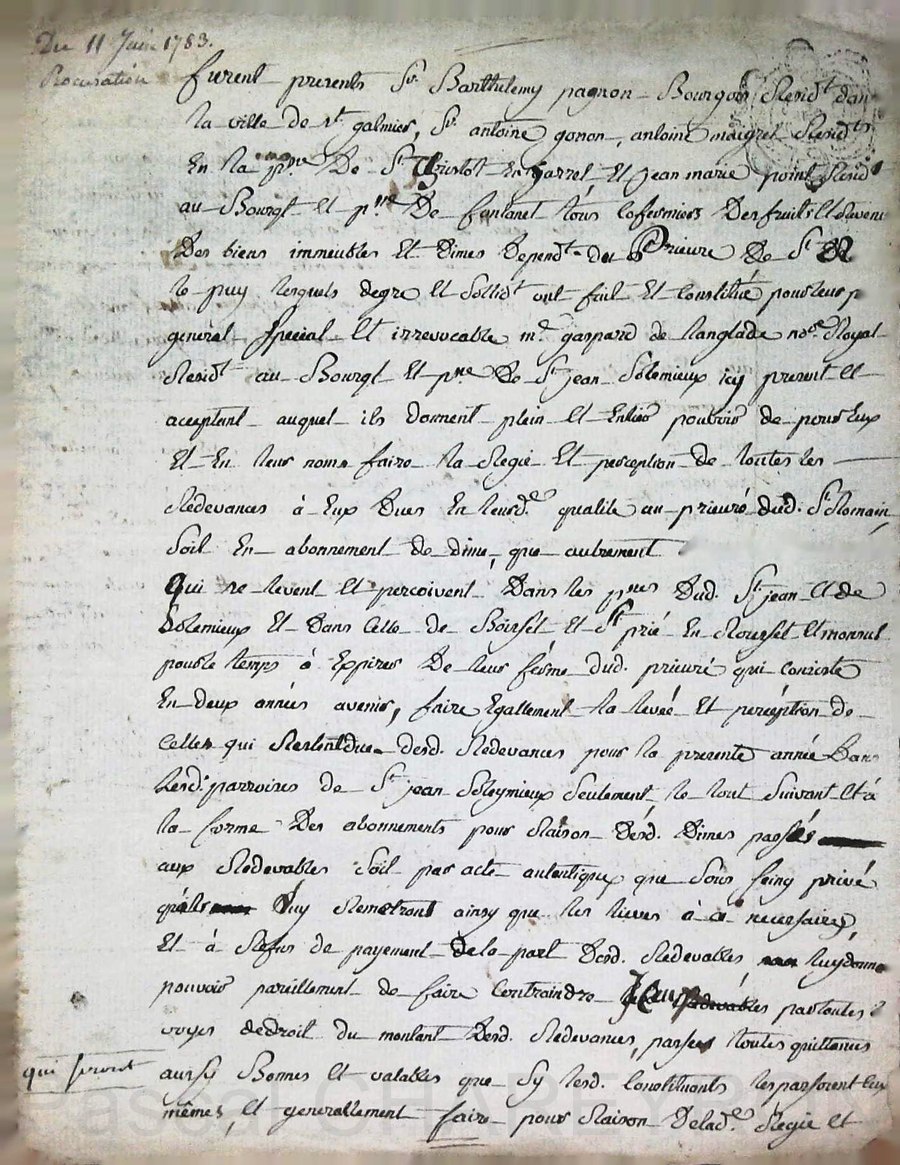 Du 11 Juin 1783.
Procuration
furent presents Sr. Barthelemy pagnon Bourgois Residt dans
la ville de St galmier, Sr. antoine gonon, antoine maigret Residts
En la psse De St Christot En Jarret Et Jean marie point Residt
au Bourgt Et psse De fontanet tous cofermiers Des fruits Et
Des biens immeubles Et Dimes Dependt du Prieuré De St
le puy lesquels degre Et Sollidt ont fait Et Constitué pour leur
général Special Et irrevocable me gaspard de Langlade nore Royal
Residt au Bourgt Et psse De St jean Solemieux icy present Et
aceptant auquel ils donnent plein Et Entier pouvoir de pour Eux
Et En leur nom faire la Regie Et perception de toutes les
Redevances à Eux Dues En leurd. qualité au prieuré dud. St Romain,
Soit En abonnement de dime, que autrement
Qui se levent Et percoivent Dans les psses Dud. St jean Et de
Solemieux Et Dans Celle de Boisset Et St prié En Rousset Et
pour le temps à Expirer De leur ferme dud. prieuré qui Conciste
En deux années avenir, faire Egallement la levée Et perception de
Celles qui Restent due desd. Redevances pour la presente année Dans
Lesd. parroises de St jean Soleymieux Seulement le tout Suivant Et à
la forme Des abonnements pour Raison Desd. Dimes passés
aux Redevables Soit par acte autentique que Sous Seing privé
quils Luy Remetront ainsy que les lieves à ce necessaires,
Et à Refus de payement de la part Desd. Redevables luy donne
pouvoir pareillement de faire Contraindre par toutes
voyes de droit du montant Desd. Redevances, passer toutes quittances
qui seront
aussy Bonnes Et valables que Sy lesd. Constituants les passoient Eux
mêmes, Et generallement faire pour Raison Delade. Regie Et